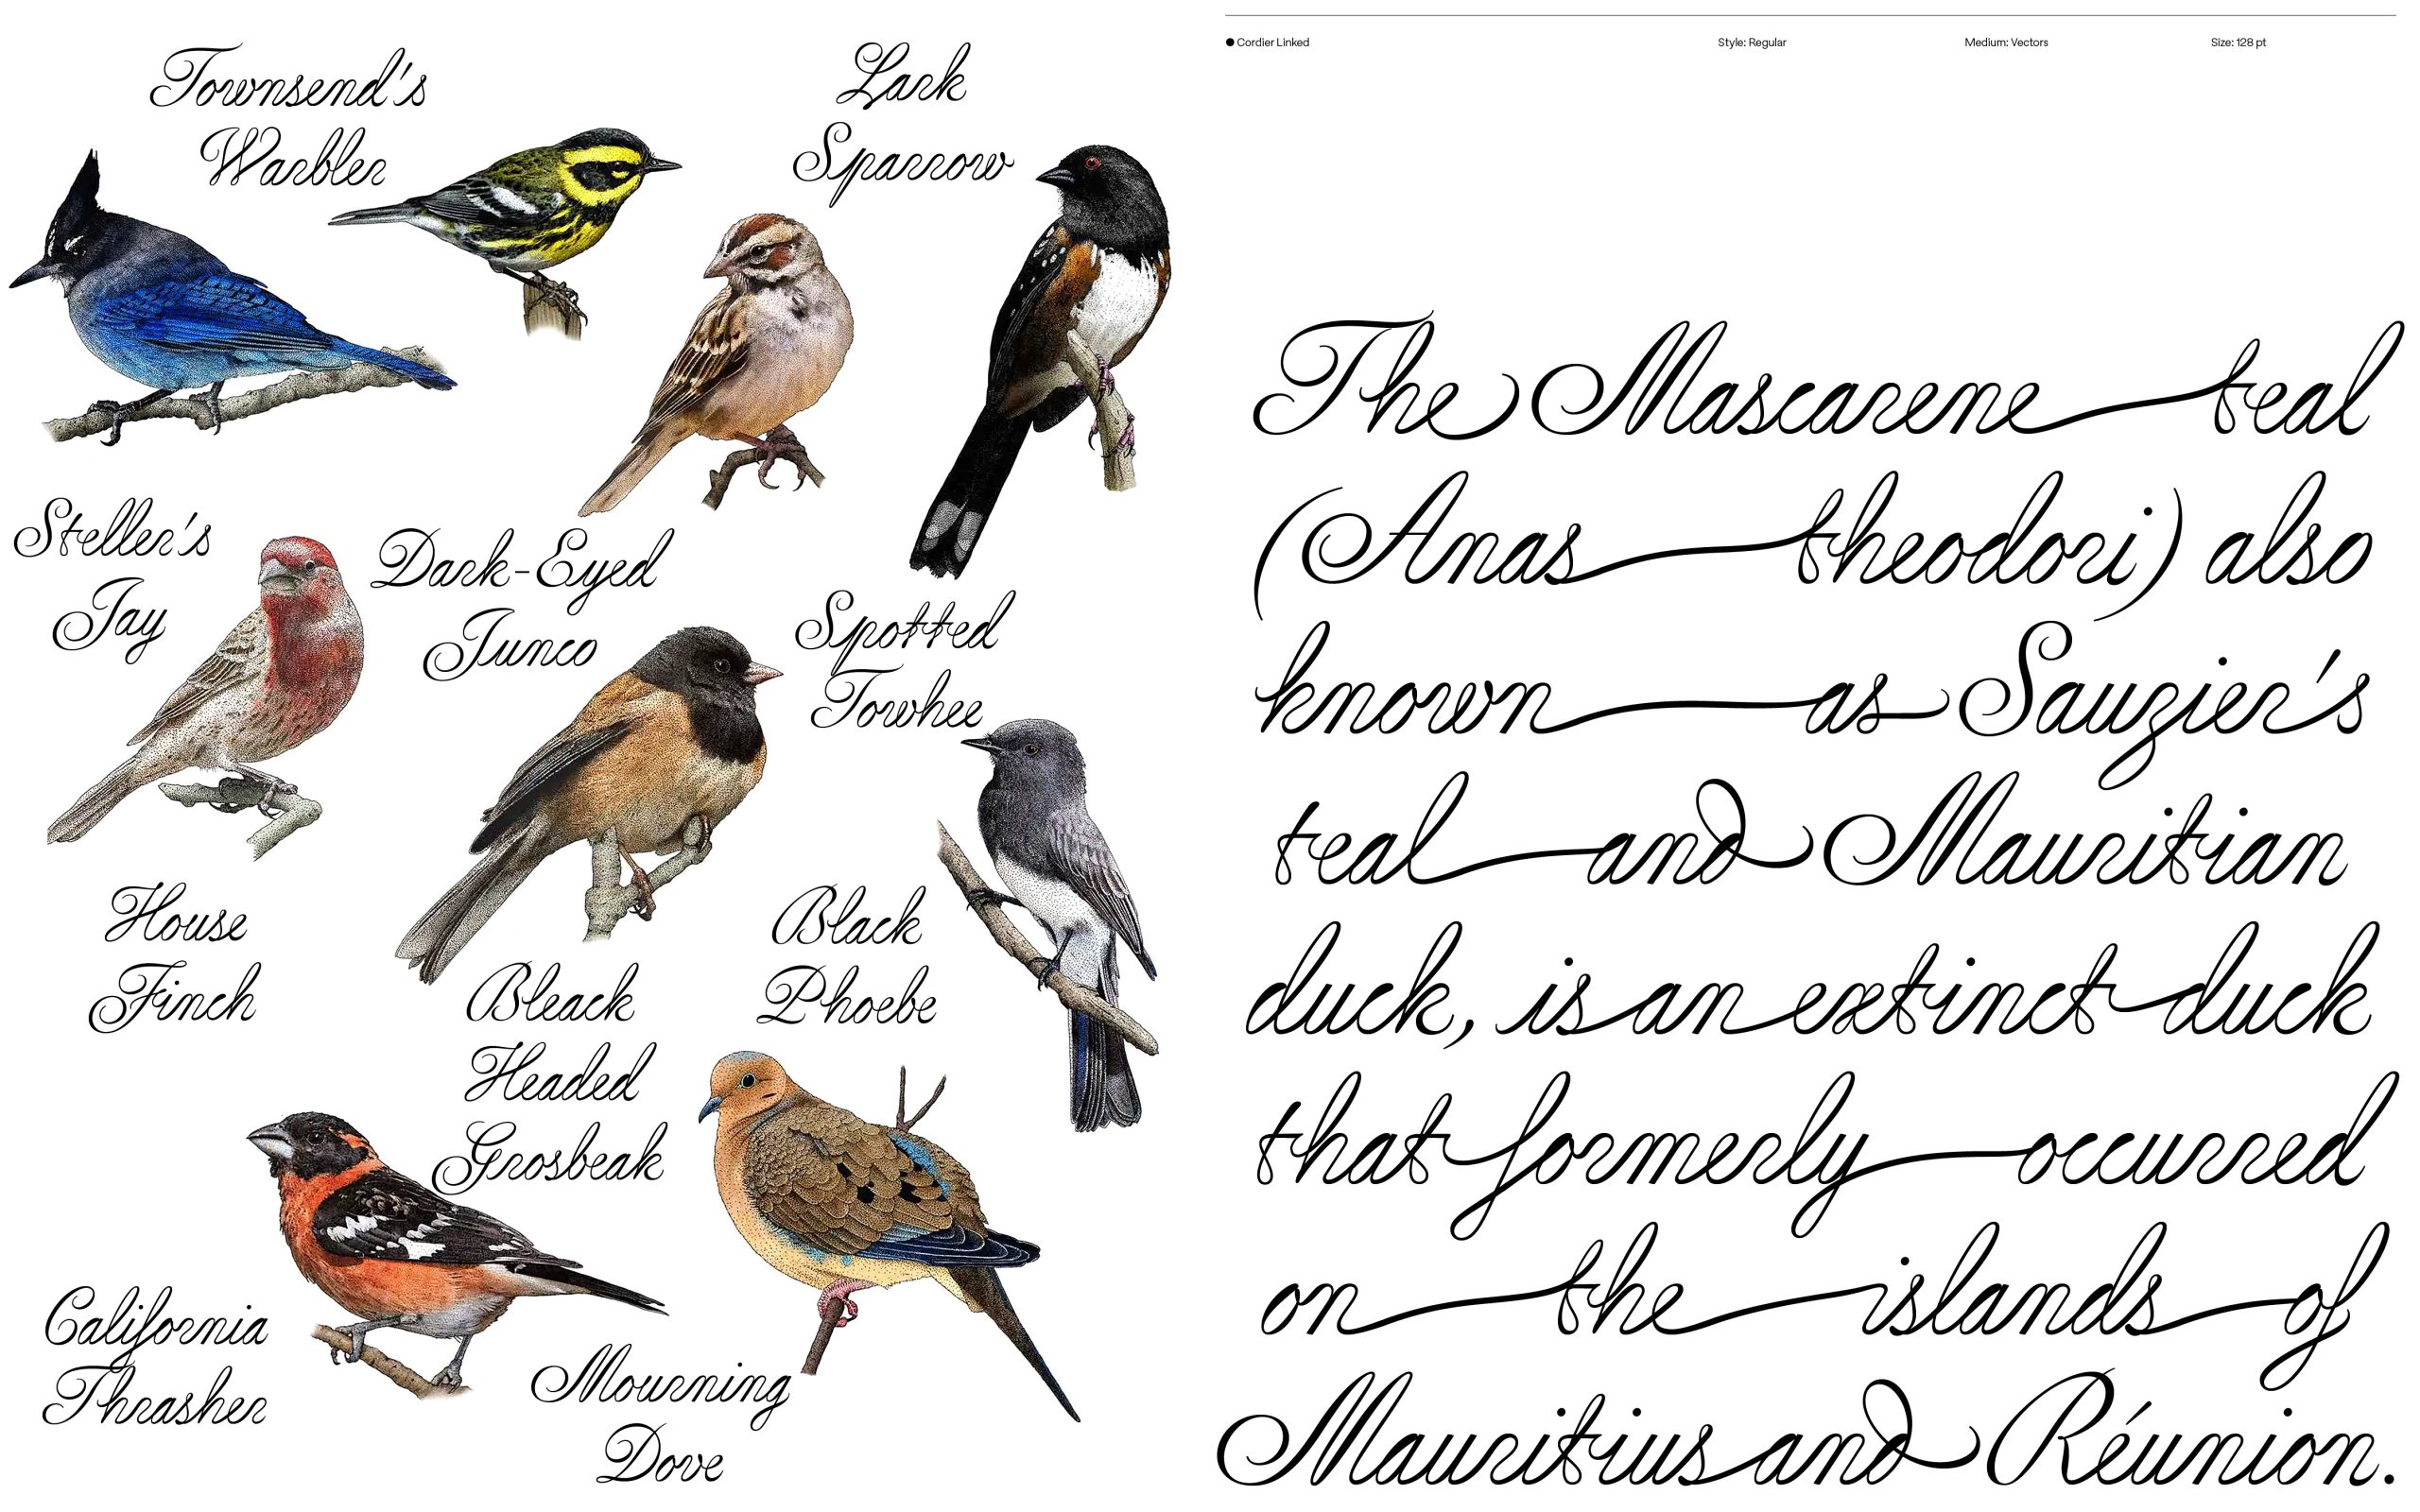 Townsend's
Warbler
Lark
Sparrow
Steller's
Jay
Dark-Eyed
Junco
Spotted
Towhee
House
Finch
Bleack
Headed
Grosbeak
Black
Phoebe
California
Thrasher
Mourning
Dove
Cordier Linked
Style: Regular
Medium: Vectors
Size: 128 pt
The Mascarene teal
(Anas theodori) also
known as Sauzier's
teal and Mauritian
duck, is an extinct duck
that formerly occurred
on the islands of
Mauritius and Réunion.